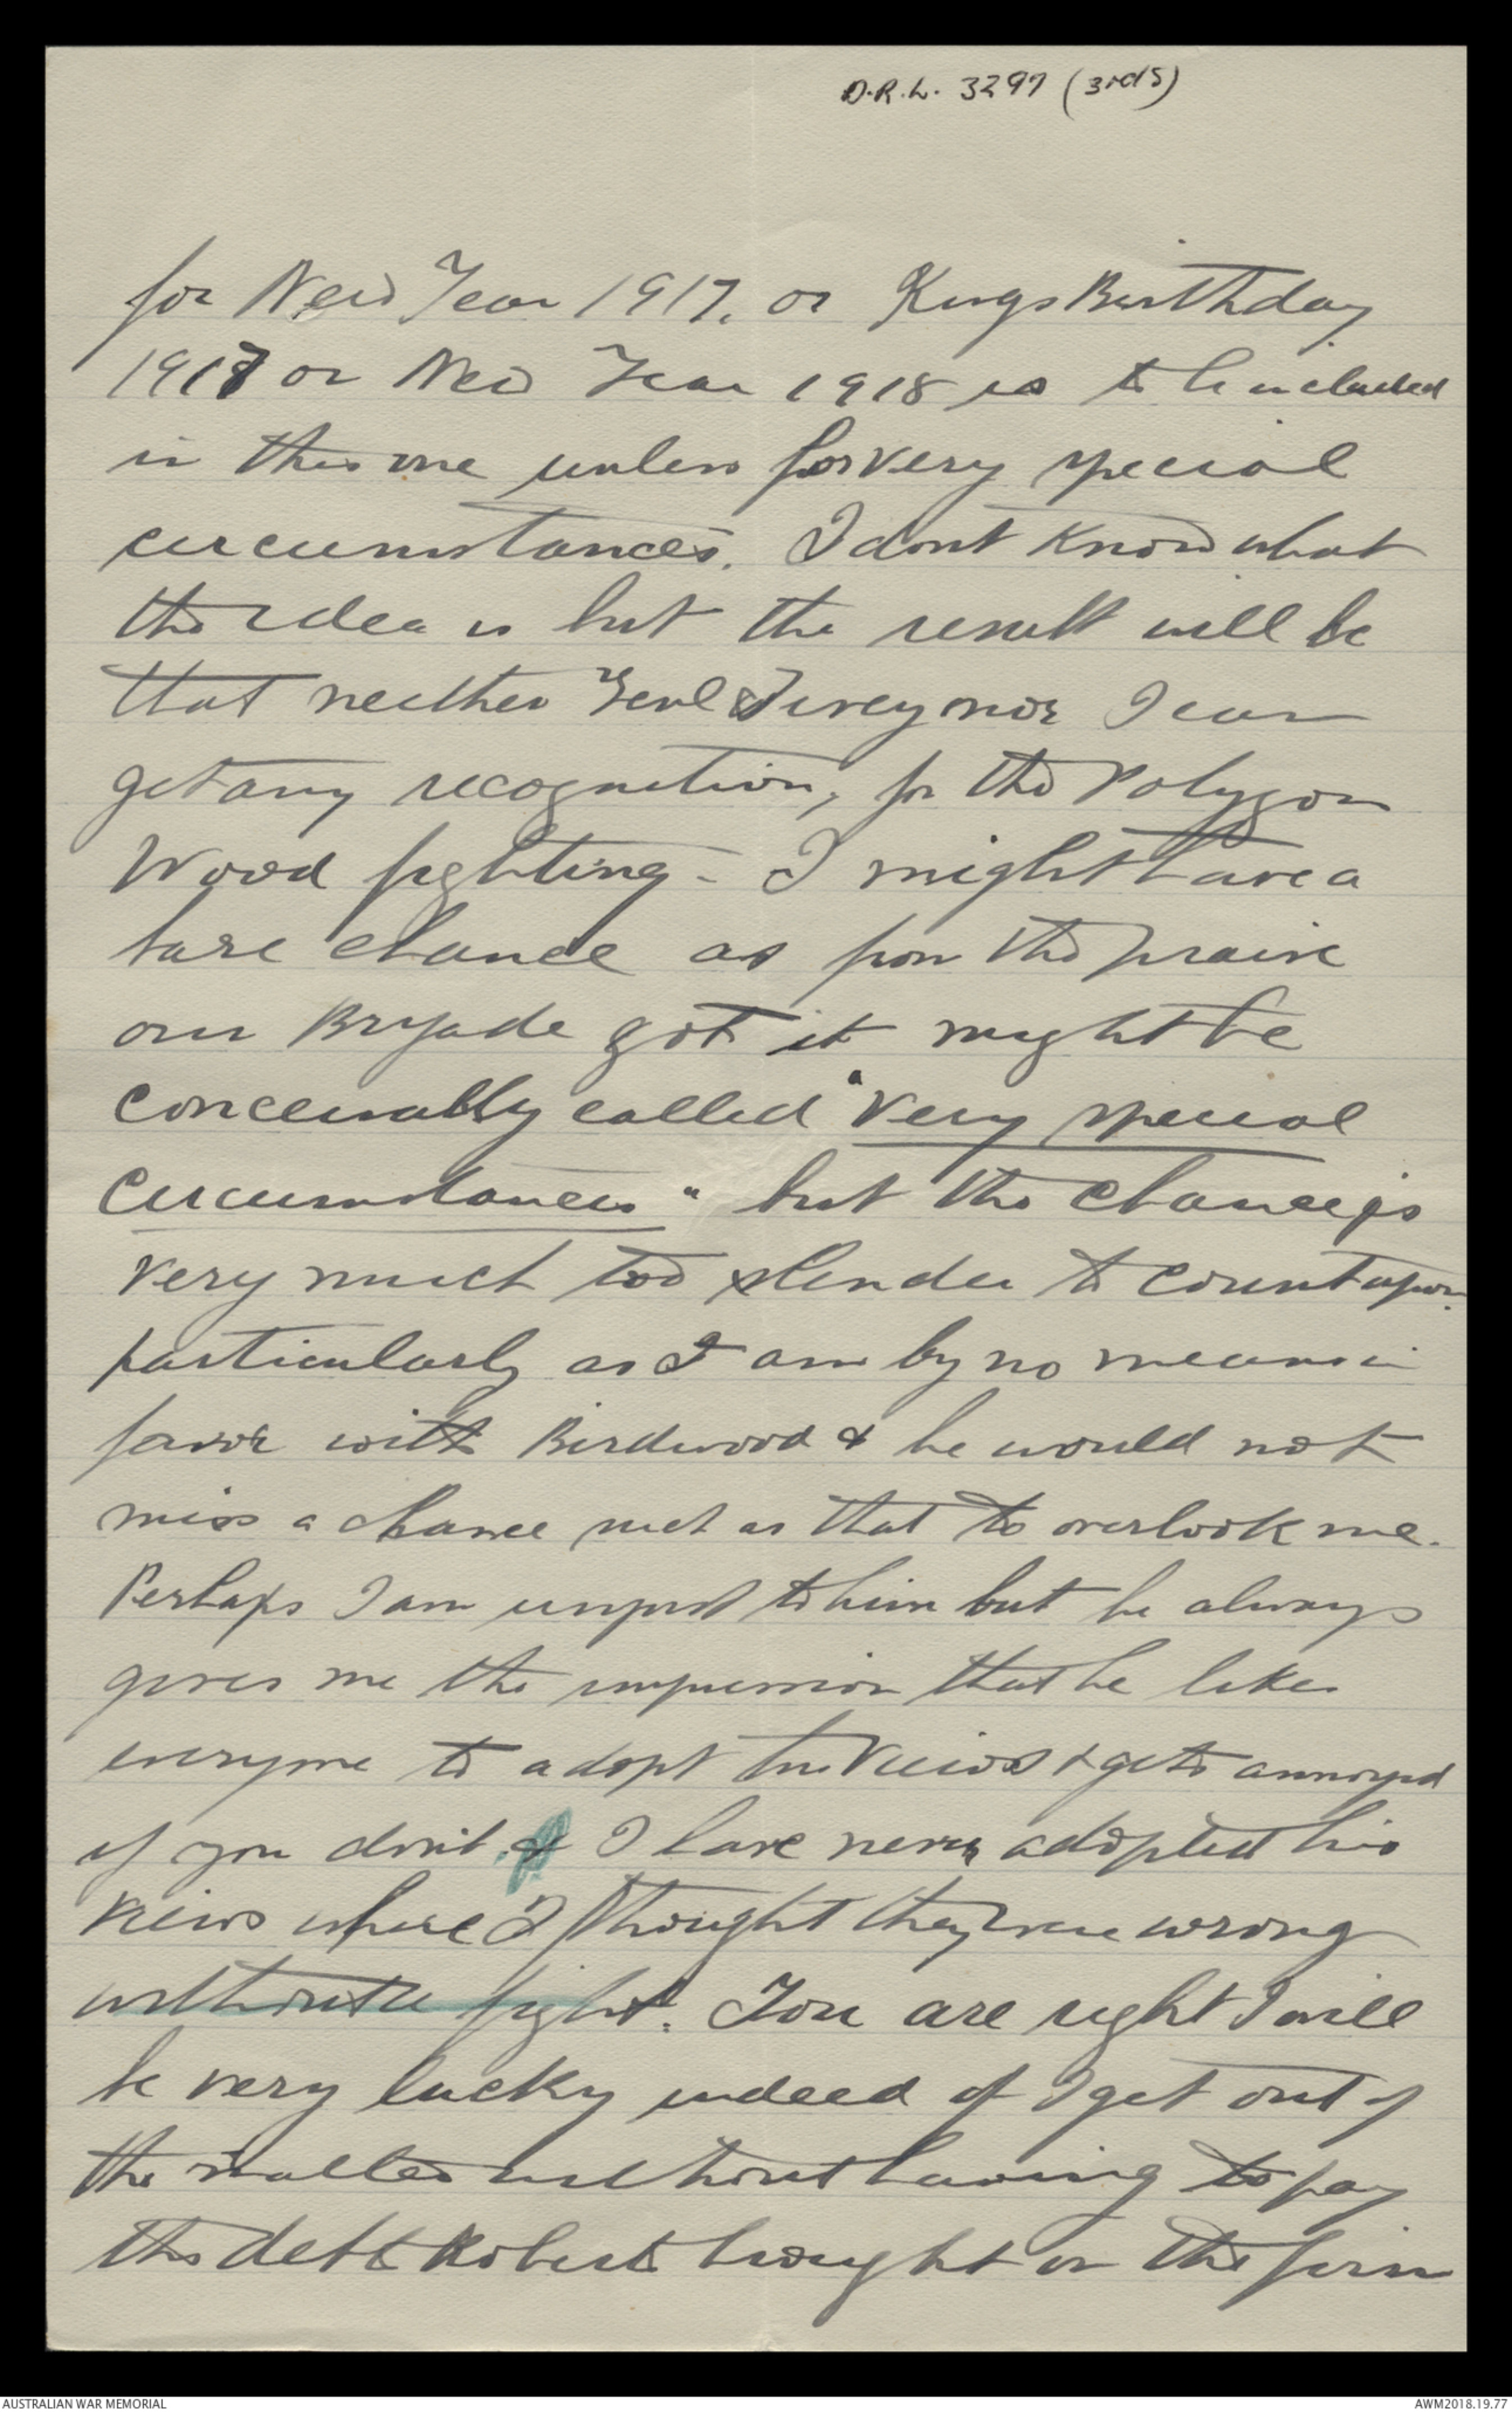 D.R.L. 3297 (3rdS)
for New Year 1917, or Kings Birthday
1917 or New Year 1918 is to be included
in this one unless for very special
circumstances. I dont know what
the idea is but the result will be
that neither Genl Tivey nor I can
get any recognition, for the Polygon
Wood fighting - I might have a
bare chance as from the praise
our Brigade got it might be
conceivably called "very special
circumstances" but the chance is
very much too slender to count upon.
particularly as I am by no means in
favor with Birdwood & he would not
miss a chance such as that to overlook me.
Perhaps I am unjust to him but he always
gives me the impression that he likes
everyone to adopt his views & gets annoyed
if you don't & I have never adopted his
views where I thought they were wrong
without a fight. You are right I will
be very lucky indeed if I get out of
the matter without having to pay
the debt Roberts brought on the firm
AUSTRALIAN WAR MEMORIAL
AWM2018.19.77